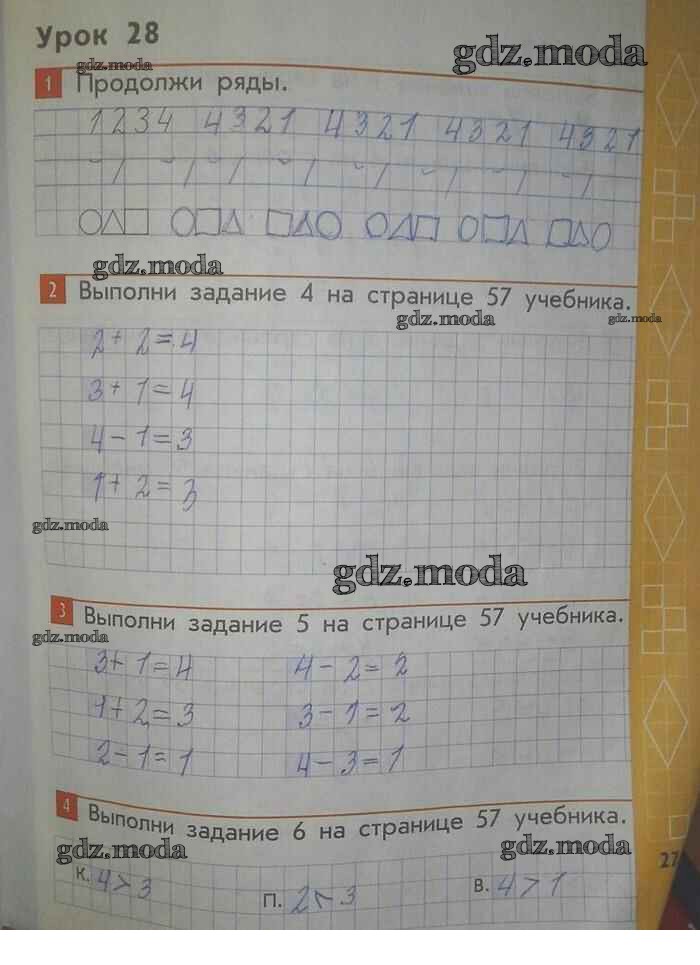 Урок 28
gdz.moda
gdz.moda
1 Продолжи ряды.
1234 4321 4321 4321 4321
gdz.moda
2 Выполни задание 4 на странице 57 учебника.
gdz.moda gdz.moda
2 + 2 = 4
3 + 1 = 4
4 - 1 = 3
1 + 2 = 3
gdz.moda
gdz.moda
3 Выполни задание 5 на странице 57 учебника.
gdz.moda
3 + 1 = 4 4 - 2 = 2
1 + 2 = 3 3 - 1 = 2
2 - 1 = 1 4 - 3 = 1
4 Выполни задание 6 на странице 57 учебника.
gdz.moda gdz.moda
К. 4 > 3 П. 2 < 3 В. 4 > 1
27